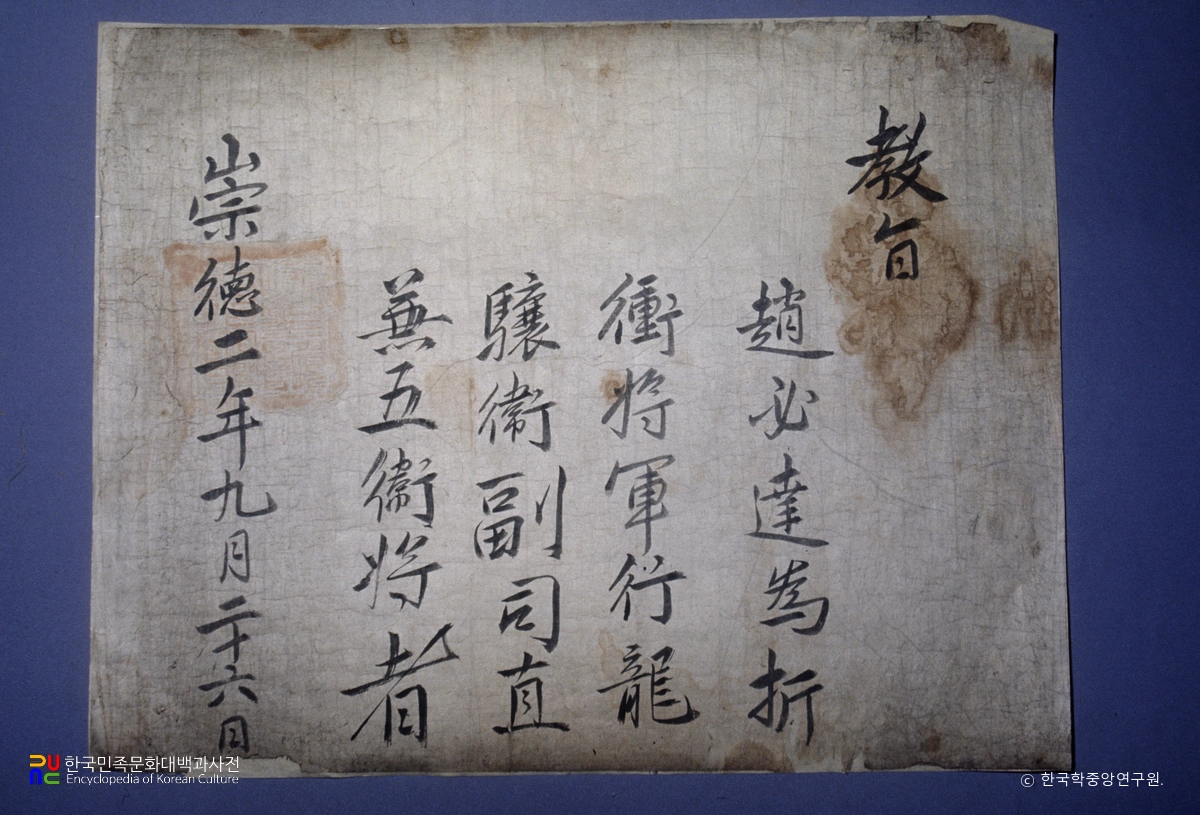 教旨
趙必達為折
衝將軍行龍
驤衛副司直
兼五衛將者
崇德二年九月二十六日
한국민족문화대백과사전
Encyclopedia of Korean Culture
ⓒ 한국학중앙연구원.